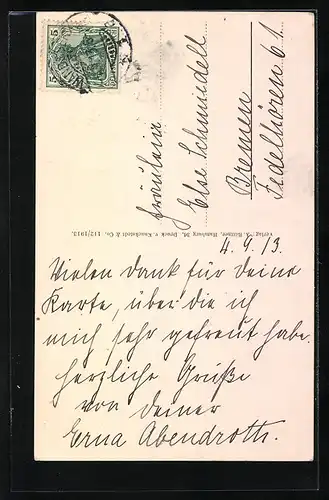 Fräulein
Else Schmiedell
Bremen
Fedelhören 61
4.9.13.
Vielen Dank für Deine
Karte, über die ich
mich sehr gefreut habe.
Herzliche Grüße
von Deiner
Erna Abendroth.
Hamburg 36, Druck v. Knackstedt & Co. 112/1913.